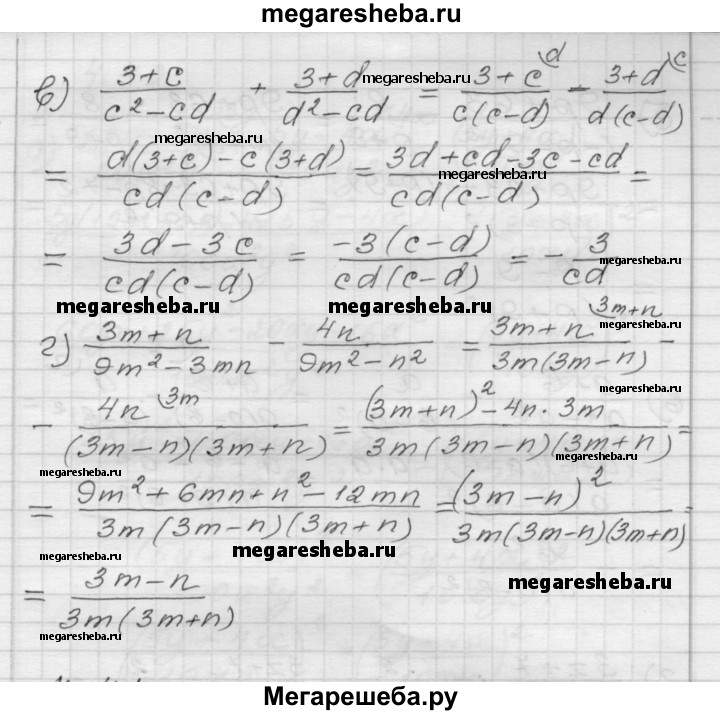 megaresheba.ru
в) (3+c)/(c²-cd) + (3+d)/(d²-cd) = (3+c)/(c(c-d)) ^d - (3+d)/(d(c-d)) ^c
megaresheba.ru
megaresheba.ru
= (d(3+c)-c(3+d))/(cd(c-d)) = (3d+cd-3c-cd)/(cd(c-d)) =
megaresheba.ru
= (3d-3c)/(cd(c-d)) = (-3(c-d))/(cd(c-d)) = - 3/(cd)
megaresheba.ru
megaresheba.ru megaresheba.ru
г) (3m+n)/(9m²-3mn) - 4n/(9m²-n²) = (3m+n)/(3m(3m-n)) ^3m+n -
megaresheba.ru
megaresheba.ru
- 4n/((3m-n)(3m+n)) ^3m = ((3m+n)²-4n·3m)/(3m(3m-n)(3m+n)) =
megaresheba.ru
megaresheba.ru
= (9m²+6mn+n²-12mn)/(3m(3m-n)(3m+n)) = (3m-n)²/(3m(3m-n)(3m+n)) =
megaresheba.ru
megaresheba.ru
= (3m-n)/(3m(3m+n))
megaresheba.ru
megaresheba.ru
Мегарешеба.ру